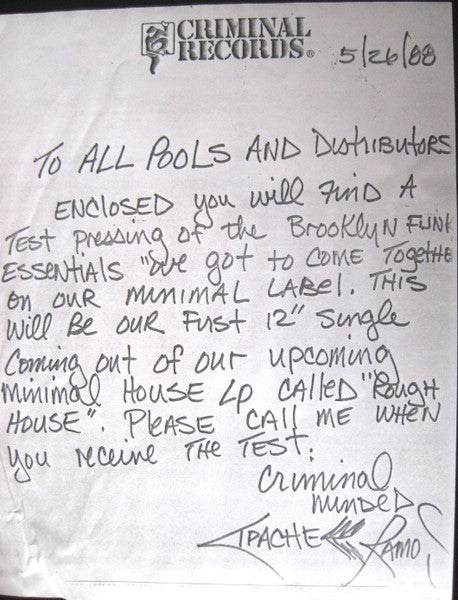 CRIMINAL
RECORDS®
5/26/88
TO ALL POOLS AND Distributors
ENCLOSED you will FIND A
TEST pressing of the BrooklyN FUNK
ESSENTIALS "We got to COME Togethe
on our MINIMAL LABEL. THIS
will Be OUR First 12" Single
Coming out of our upcoming
Minimal HOUSE Lp CALLED "Rough
HOUSE". PLEASE CALL ME WHEN
you receive THE TEST.
Criminal
MINDED
APACHE Ramos